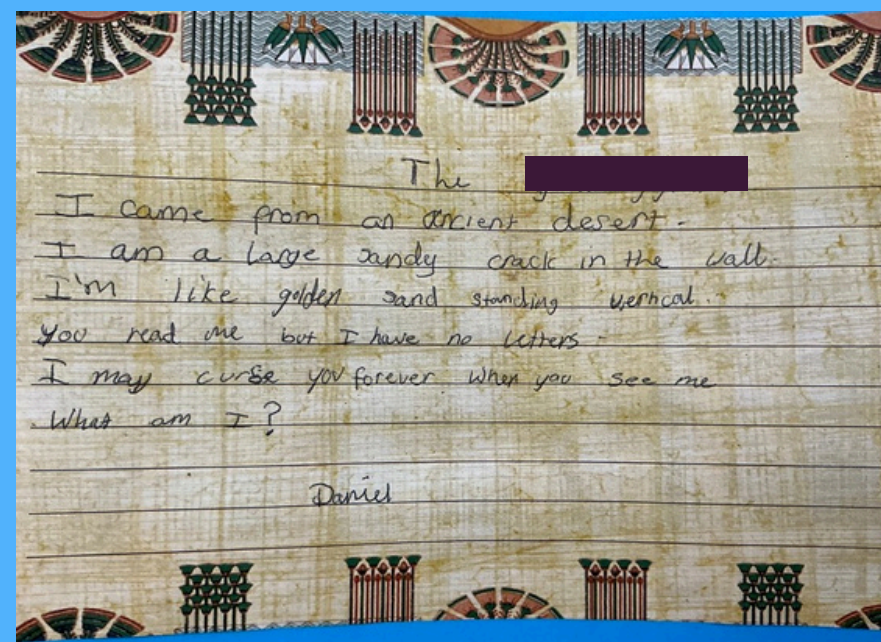 The
I came from an ancient desert.
I am a large sandy crack in the wall.
I'm like golden sand standing vertical.
you read me but I have no letters.
I may curse you forever when you see me
What am I?
Daniel